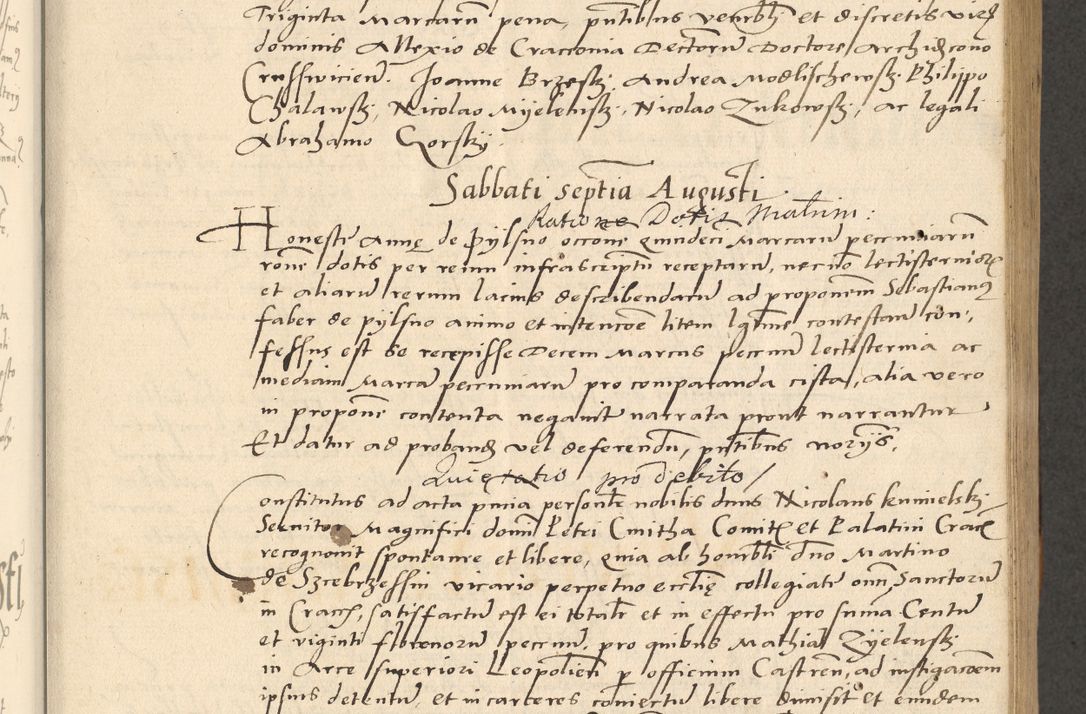 Triginta Marcarum pena, pntibus venerabli et discretis viris
dominis Allexio de Cracconia Decretorum Doctore Archidiacono
Crusswicien. Joanne Brzeski, Andrea Modlischewski, Philippo
Chalawski, Nicolao Myelenski, Nicolao Zukowski, ac legali
Abrahamo Gorsky.
Sabbati septia Augusti
Ratione Dotis Matrim:
Honeste Anne de Pylsno occone quindeci Marcaru pecuniaru
rone dotis per reum infrascriptu receptaru, necno lectisternior
et aliaru rerum lacius describendaru ad proponem Sebastianus
faber de pylsno animo et intencoe litem lgttime contestan con,
fessus est se recepisse Decem Marcas pecuni lectisternia ac
mediam Marca pecuniaru pro comparanda cista, alia vero
in propone contenta negavit narrata prout narrantur
Et datur ad proband vel deferendu, pntibus norijs.
Quietatio pro debito
Constitutus ad acta pnia personlr nobilis dnus Nicolaus kunielski
Servitor Magnifici domi Petri Cmitha Comit et Palatini Crac
recognovit spontanee et libere, quia ab honorbli dno Martino
de Szcebrzessin vicario perpetuo ecclie collegiate omni Sanctoru
in Cracch, satisfactu est ei totalr et in effectu pro suma Centu
et viginti florenoru pecuni, pro quibus Mathia Zyelenski
in Arce superiori Leopolien p officium Castren, ad instigacoem
ipsius detentu, et in carceres coniectu libere dimisit et eundem